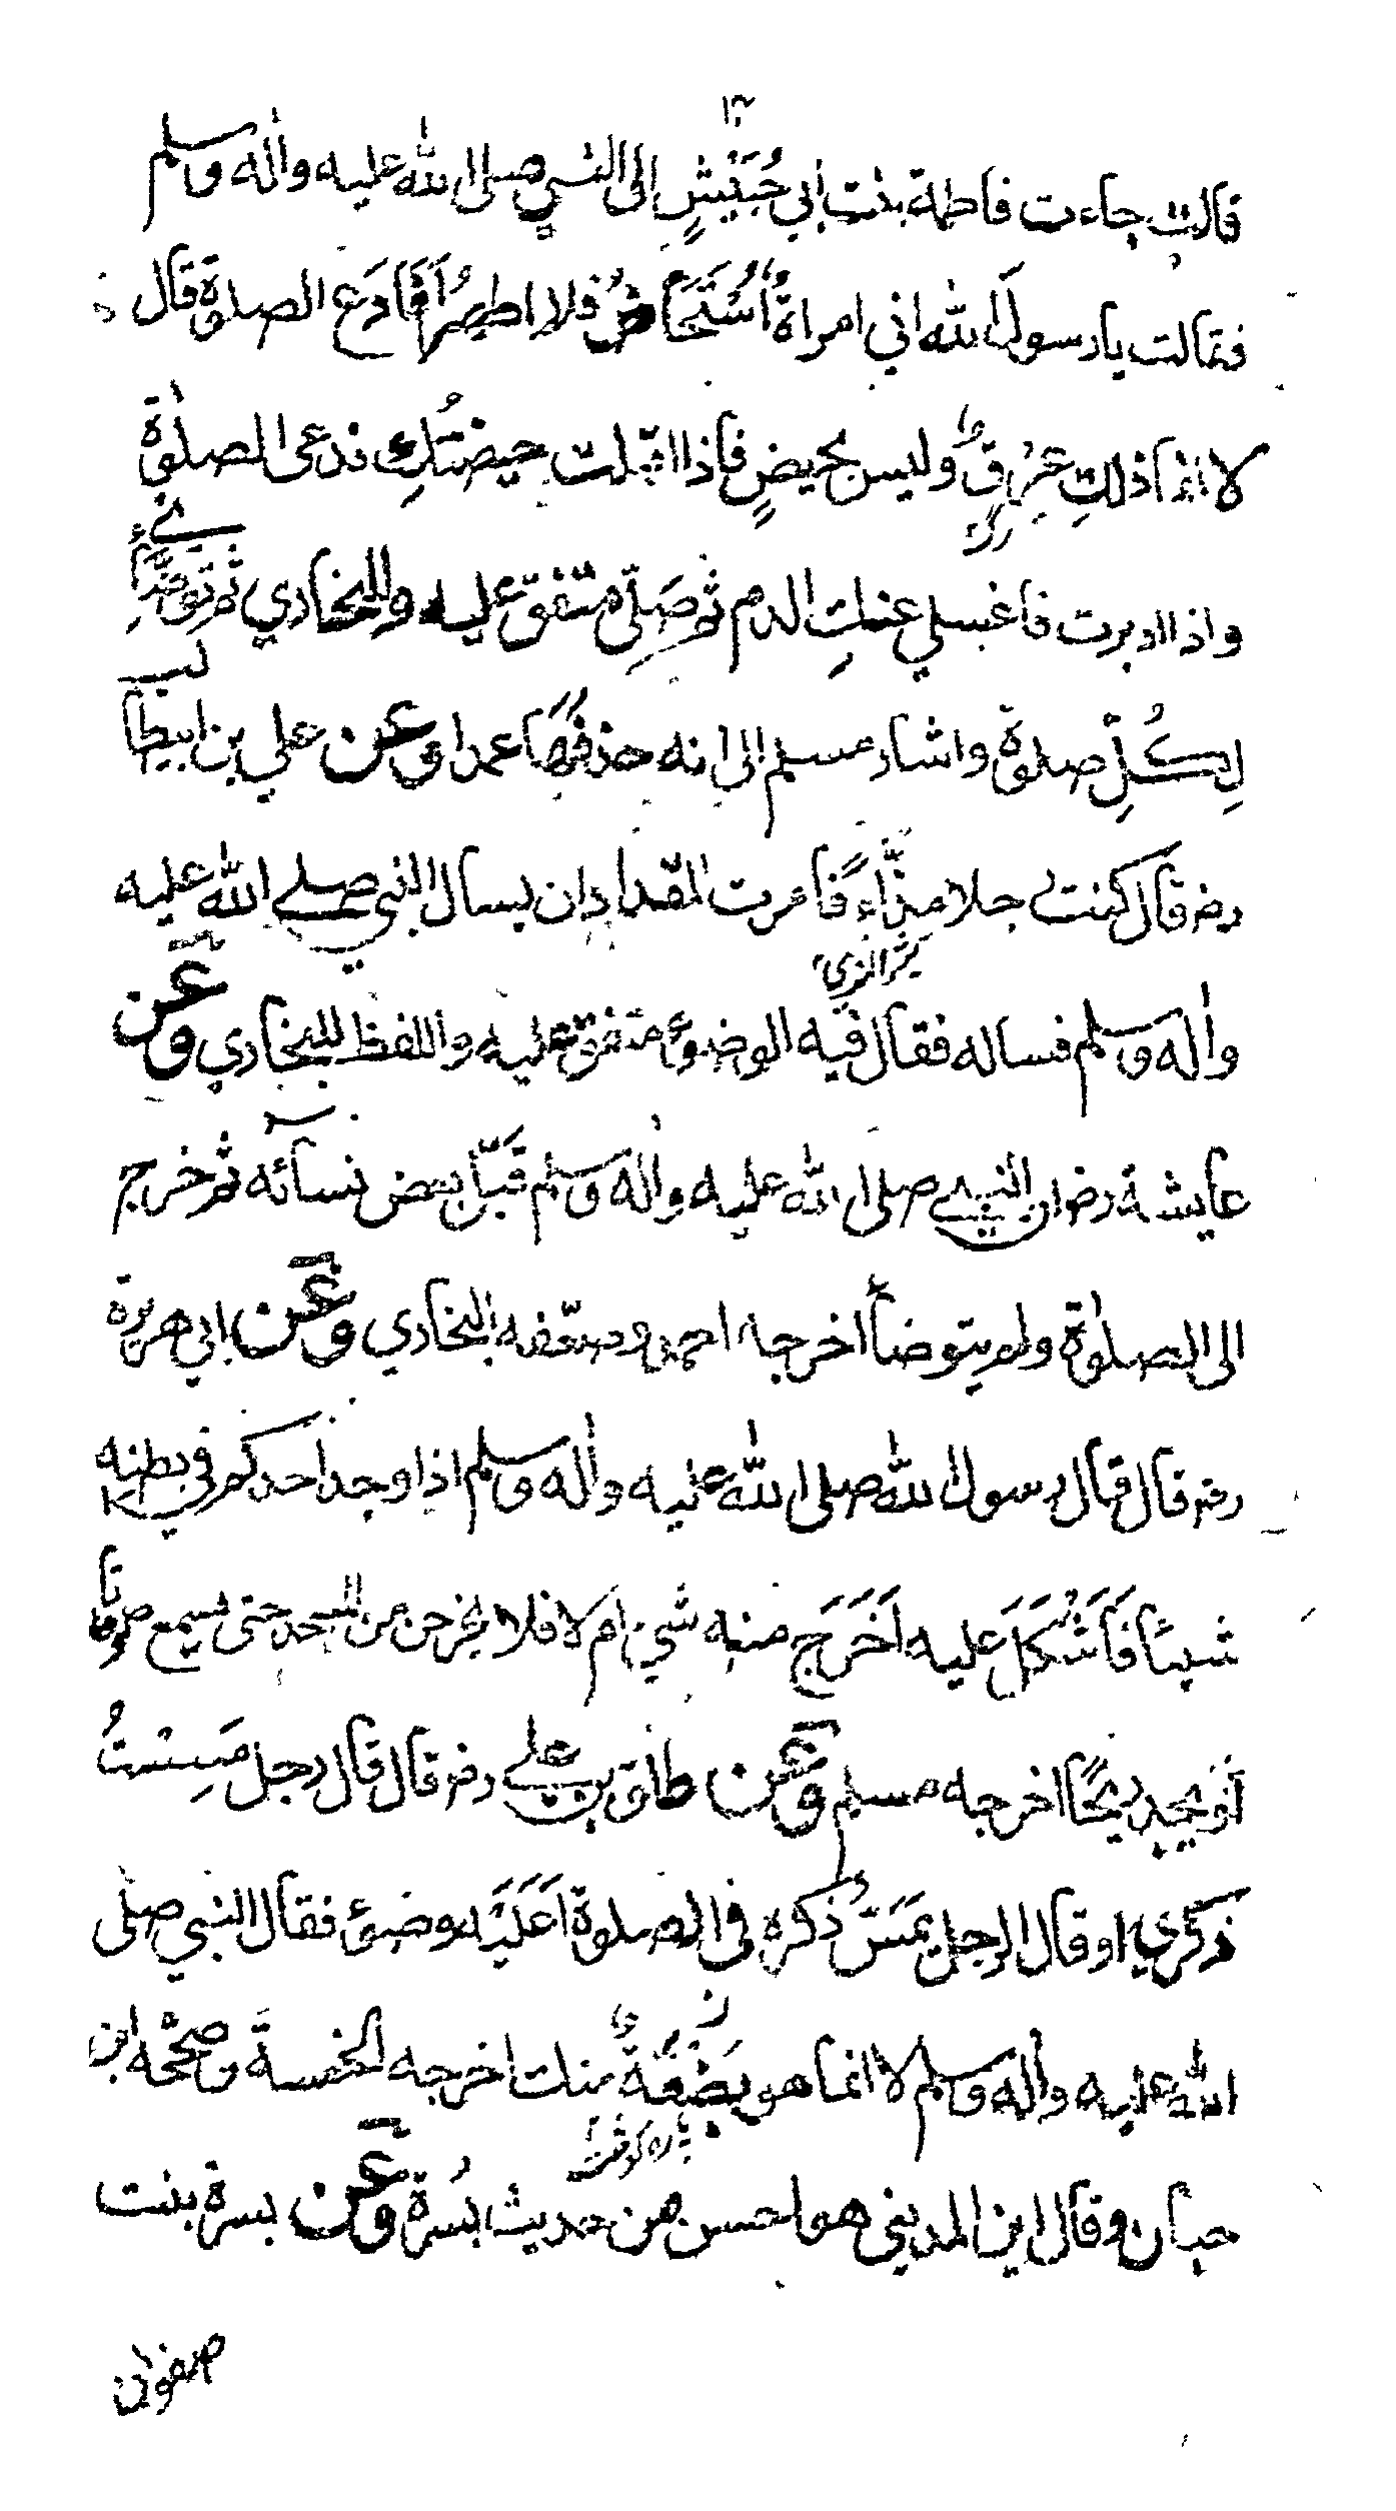 قالت جاءت فاطمة بنت ابي حُبَيْشٍ الى النبي صلى الله عليه واٰله وسلم
فقالت يا رسولَ الله اني امراةٌ اُسْتَحَاضُ فلا اطهُرُ اَفَاَدَعُ الصلوة قال
لا انما ذلكِ عِرْقٌ وليس بحيضٍ فاذا اقبلت حيضتُكِ فدعى الصلوٰة
رگ
واذا ادبرت فاغسلي عنكِ الدم ثم صَلِّى متفق عليه وللبخاري ثم توضَّأِي
لِكُلِّ صلوة واشار مسلم الى انه حذفهَا عمدا وعن علي بن ابيطالب
رضـ قال كنت رجلا مذَّاءً فامرت المقداد ان يسال النبي صلى الله عليه
كثير المذي
واٰله وسلم فساله فقال فيه الوضوء متفق عليه واللفظ للبخاري وعن
عايشة رضـ ان النبي صلى الله عليه واٰله وسلم قَبَّلَ بعض نسآئه ثم خرج
الى الصلوٰة ولم يتوضأ اخرجه احمد وضعّفه البخاري وعن ابي هريرة
رضـ قال قال رسول الله صلى الله عليه واٰله وسلم اذا وجد احدكم في بطنه
شيئا فَاَشْكَلَ عليه اَخَرَجَ منه شيء ام لا فلا يخرجن من المسجد حتى يسمع صوتا
اَوْ يجد ريحًا اخرجه مسلم وعن طلق بن علي رضـ قال قال رجل مَسِسْتُ
ذكري او قال الرجل يمَسّ ذكره في الصلوة اَعَلَيْه وضوء فقال النبي صلى
الله عليه واٰله وسلم لا انما هو بَضْعَةٌ منك اخرجه الخمسة وصحّحه ابن
پاره گوشت
حبان وقال ابن المديني هو احسن من حديث بُسْرة وعن بسرة بنت
صفوان